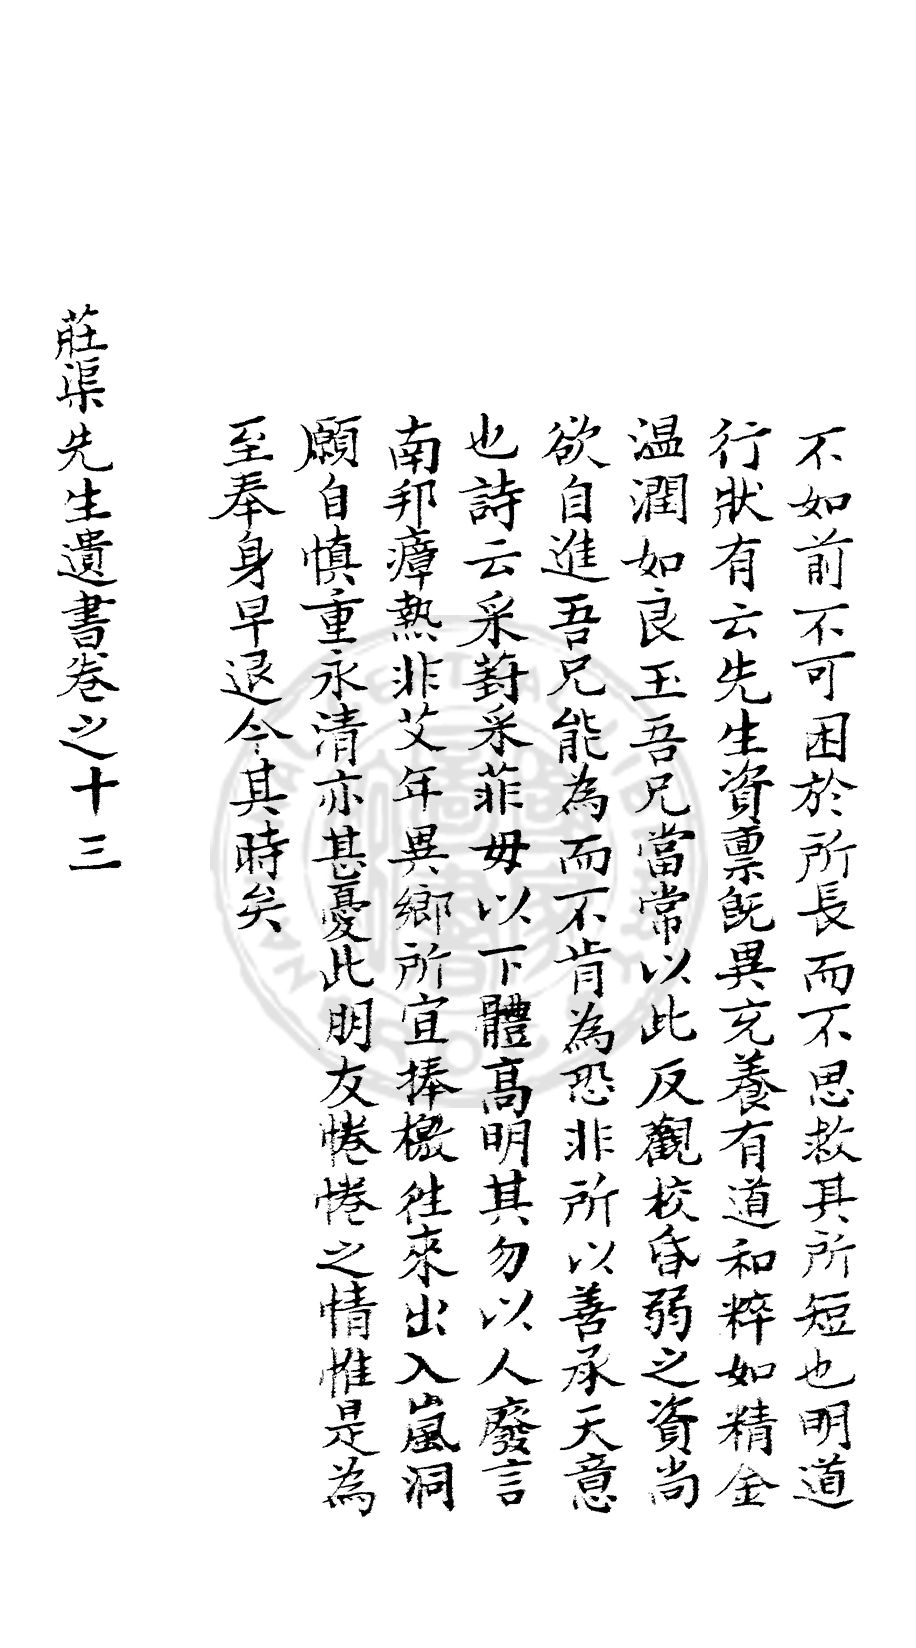 不如前不可困於所長而不思救其所短也明道
行狀有云先生資禀既異充養有道和粹如精金
温潤如良玉吾兄當常以此反觀校昏弱之資尚
欲自進吾兄能為而不肯為恐非所以善承天意
也詩云采葑采菲毋以下體高明其勿以人廢言
南邦瘴熱非艾年異鄉所宜捧檄徃來出入嵐洞
願自慎重永清亦甚憂此朋友惓惓之情惟是為
至奉身早退今其時矣
莊渠先生遺書卷之十三